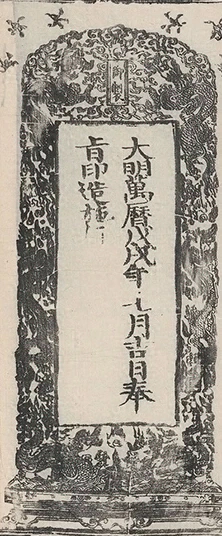 御制
大明萬曆戊戌年七月吉日奉
旨印造施